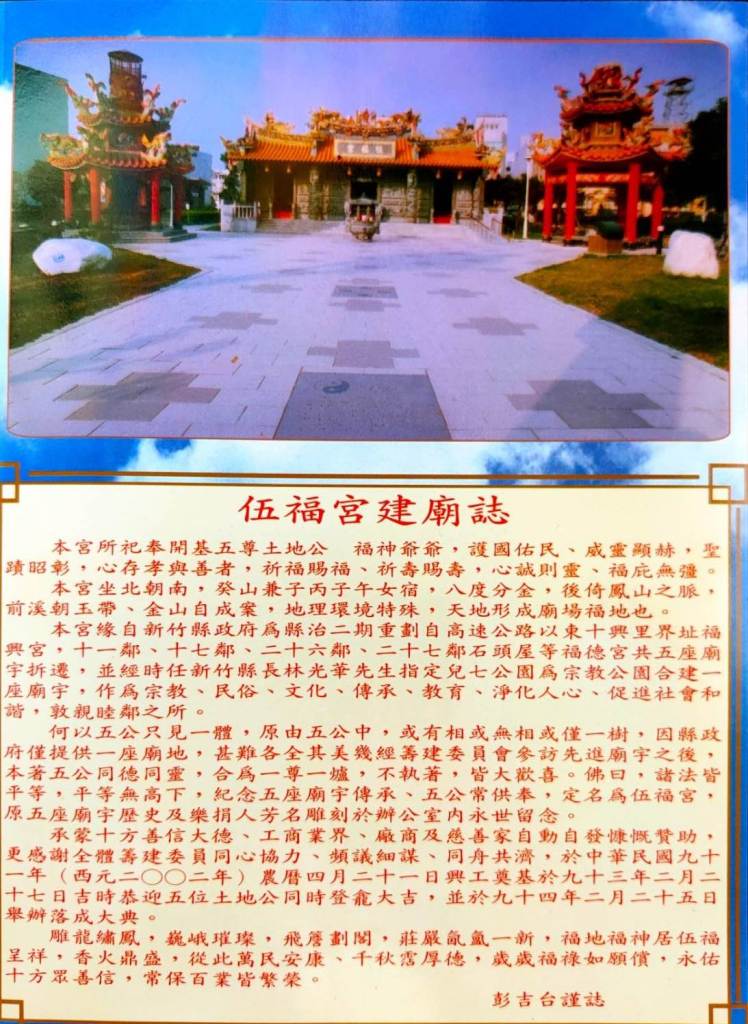 伍福宮建廟誌
本宮所祀奉開基五尊土地公　福神爺爺，護國佑民、威靈顯赫，聖
蹟昭彰，心存孝與善者，祈福賜福、祈壽賜壽，心誠則靈、福庇無彊。
本宮坐北朝南，癸山兼子丙子午女宿，八度分金，後倚鳳山之脈，
前溪朝玉帶、金山自成案，地理環境特殊，天地形成廟場福地也。
本宮緣自新竹縣政府為縣治二期重劃自高速公路以東十興里界址福
興宮，十一鄰、十七鄰、二十六鄰、二十七鄰石頭屋等福德宮共五座廟
宇拆遷，並經時任新竹縣長林光華先生指定兒七公園為宗教公園合建一
座廟宇，作為宗教、民俗、文化、傳承、教育、淨化人心、促進社會和
諧，敦親睦鄰之所。
何以五公只見一體，原由五公中，或有相或無相或僅一樹，因縣政
府僅提供一座廟地，甚難各全其美幾經籌建委員會參訪先進廟宇之後，
本著五公同德同靈，合為一尊一爐，不執著，皆大歡喜。佛曰，諸法皆
平等，平等無高下，紀念五座廟宇傳承、五公常供奉，定名為伍福宮，
原五座廟宇歷史及樂捐人芳名雕刻於辦公室內永世留念。
承蒙十方善信大德、工商業界、廠商及慈善家自動自發慷慨贊助，
更感謝全體籌建委員同心協力、頻議細謀、同舟共濟，於中華民國九十
一年（西元二〇〇二年）農曆四月二十一日興工奠基於九十三年二月二
十七日吉時恭迎五位土地公同時登龕大吉，並於九十四年二月二十五日
舉辦落成大典。
雕龍繡鳳，巍峨璀璨，飛簷劃閣，莊嚴氤氳一新，福地福神居伍福
呈祥，香火鼎盛，從此萬民安康、千秋霑厚德，歲歲福祿如願償，永佑
十方眾善信，常保百業皆繁榮。
彭吉台謹誌